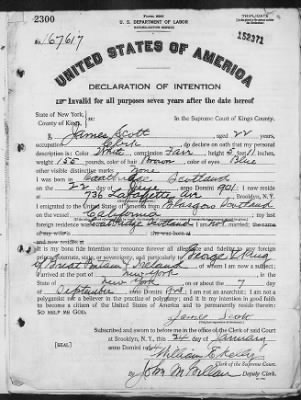 2300
Form 2202
TRIPLICATE
U. S. DEPARTMENT OF LABOR
NATURALIZATION SERVICE
No. 167617
152371
UNITED STATES OF AMERICA
DECLARATION OF INTENTION
Invalid for all purposes seven years after the date hereof
State of New York,
County of Kings, ss: In the Supreme Court of Kings County.
I, James Scott, aged 22 years,
occupation Clerk, do declare on oath that my personal
description is: Color White, complexion Fair, height 5 feet 11 inches,
weight 155 pounds, color of hair Brown, color of eyes Blue
other visible distinctive marks None
I was born in Coatbridge Scotland
on the 22 day of June, anno Domini 1901; I now reside
at 736 Lafayette Ave, Brooklyn, N.Y.
I emigrated to the United States of America from Glasgow Scotland
on the vessel California; my last
foreign residence was Coatbridge Scotland; I am not married;
It is my bona fide intention to renounce forever all allegiance and fidelity to any foreign
prince, potentate, state, or sovereignty, and particularly to George V King
of Great Britain & Ireland, of whom I am now a subject;
I arrived at the port of New York, in the
State of New York, on or about the 7 day
of September, anno Domini; I am not an anarchist; I am not a
polygamist nor a believer in the practice of polygamy; and it is my intention in good faith
to become a citizen of the United States of America and to permanently reside therein:
SO HELP ME GOD.
James Scott
Subscribed and sworn to before me in the office of the Clerk of said Court
at Brooklyn, N.Y., this day of January
anno Domini
[SEAL]
William E. Kelly
Clerk of the Supreme Court.
By John, Deputy Clerk.